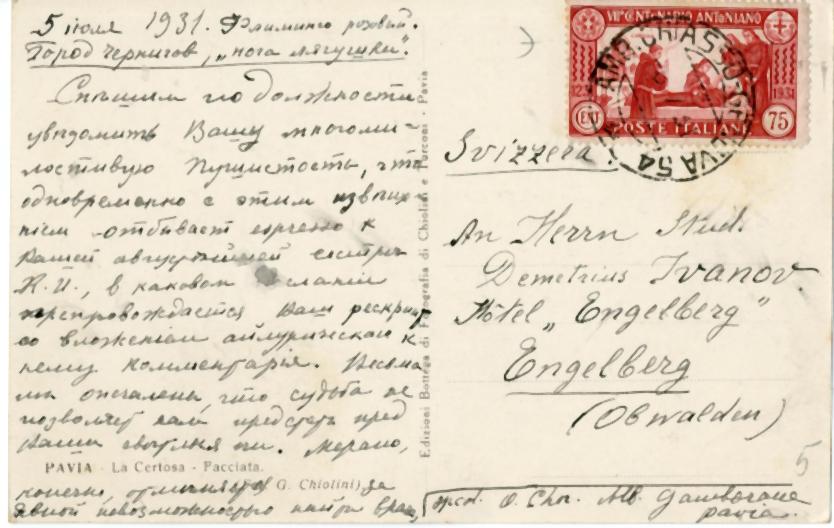 5 июля 1931. Фламинго розовый.
Город Чернигов, „нога лягушки".
Спѣшим по должности
увѣдомить Вашу многоми-
лостивую Пушистость, что
одновременно с этим извѣще-
ніем отбывает
Вашей августѣйшей сестрѣ
К.И., в каковом
препровождается Ваш рескрипт
со вложеніем айлурическаго к
нему комментарія. Весьма
мы опечалены, что судьба не
позволяет нам предстать пред
Ваши свѣтлыя очи. Мерано,
конечно, за
явной невозможностью найти
PAVIA - La Certosa - Facciata.
G. Chiolini)
Edizioni Bottega di Fotografia di Chiolini e Turconi - Pavia
VII° CENTENARIO ANTONIANO
1231
1931
CENT
75
POSTE ITALIANE
AMB. CHIASSO
54
Svizzera
An Herrn Stud.
Demetrius Ivanov.
Hôtel „Engelberg"
Engelberg
(Obwalden)
5
Pavia.